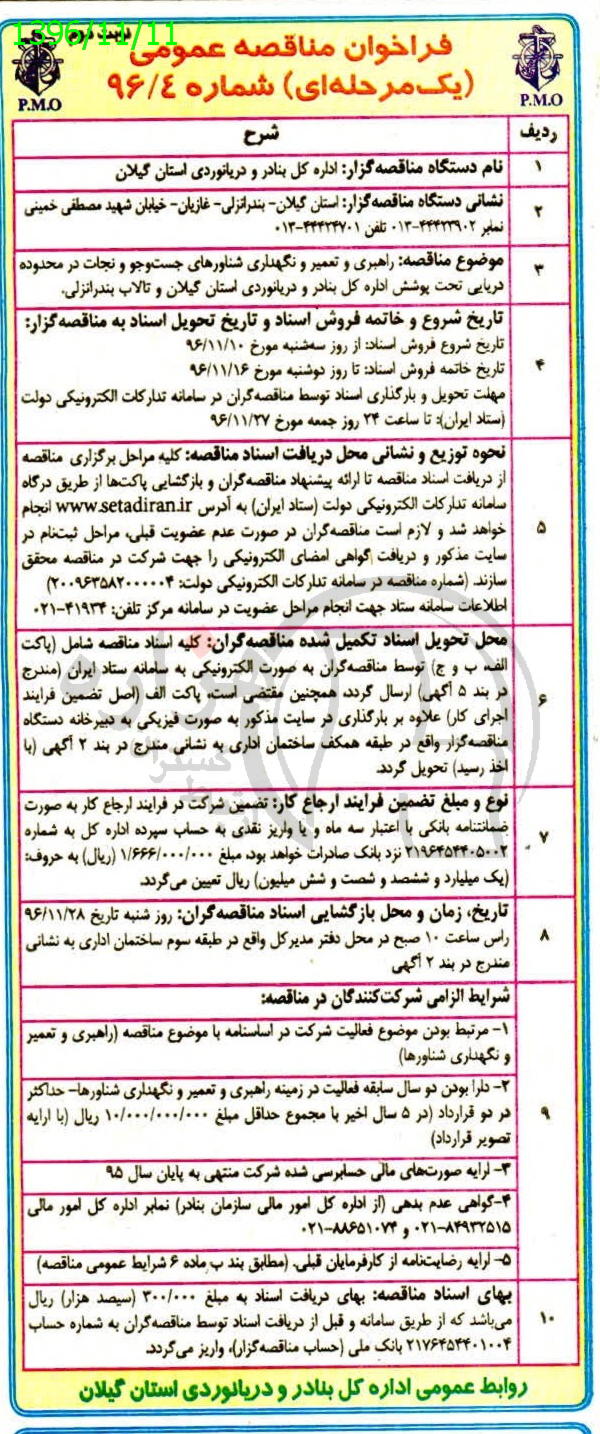 1396/11/11
نوبت دوم
فراخوان مناقصه عمومی
(یک‌مرحله‌ای) شماره ۹۶/۴
P.M.O
P.M.O
ردیف
شرح
۱
نام دستگاه مناقصه‌گزار: اداره کل بنادر و دریانوردی استان گیلان
۲
نشانی دستگاه مناقصه‌گزار: استان گیلان- بندرانزلی- غازیان- خیابان شهید مصطفی خمینی
نمابر ۴۴۴۲۳۹۰۲-۰۱۳ تلفن ۴۴۴۲۴۷۰۱-۰۱۳
۳
موضوع مناقصه: راهبری و تعمیر و نگهداری شناورهای جست‌وجو و نجات در محدوده
دریایی تحت پوشش اداره کل بنادر و دریانوردی استان گیلان و تالاب بندرانزلی.
۴
تاریخ شروع و خاتمه فروش اسناد و تاریخ تحویل اسناد به مناقصه‌گزار:
تاریخ شروع فروش اسناد: از روز سه‌شنبه مورخ ۹۶/۱۱/۱۰
تاریخ خاتمه فروش اسناد: تا روز دوشنبه مورخ ۹۶/۱۱/۱۶
مهلت تحویل و بارگذاری اسناد توسط مناقصه‌گران در سامانه تدارکات الکترونیکی دولت
(ستاد ایران): تا ساعت ۲۴ روز جمعه مورخ ۹۶/۱۱/۲۷
۵
نحوه توزیع و نشانی محل دریافت اسناد مناقصه: کلیه مراحل برگزاری مناقصه
از دریافت اسناد مناقصه تا ارائه پیشنهاد مناقصه‌گران و بازگشایی پاکت‌ها از طریق درگاه
سامانه تدارکات الکترونیکی دولت (ستاد ایران) به آدرس www.setadiran.ir انجام
خواهد شد و لازم است مناقصه‌گران در صورت عدم عضویت قبلی، مراحل ثبت‌نام در
سایت مذکور و دریافت گواهی امضای الکترونیکی را جهت شرکت در مناقصه محقق
سازند. (شماره مناقصه در سامانه تدارکات الکترونیکی دولت: ۲۰۰۹۶۳۵۸۲۰۰۰۰۰۴)
اطلاعات سامانه ستاد جهت انجام مراحل عضویت در سامانه مرکز تلفن: ۴۱۹۳۴-۰۲۱
۶
محل تحویل اسناد تکمیل شده مناقصه‌گران: کلیه اسناد مناقصه شامل (پاکت
الف، ب و ج) توسط مناقصه‌گران به صورت الکترونیکی به سامانه ستاد ایران (مندرج
در بند ۵ آگهی) ارسال گردد، همچنین مقتضی است، پاکت الف (اصل تضمین فرایند
اجرای کار) علاوه بر بارگذاری در سایت مذکور به صورت فیزیکی به دبیرخانه دستگاه
مناقصه‌گزار واقع در طبقه همکف ساختمان اداری به نشانی مندرج در بند ۲ آگهی (با
اخذ رسید) تحویل گردد.
۷
نوع و مبلغ تضمین فرایند ارجاع کار: تضمین شرکت در فرایند ارجاع کار به صورت
ضمانتنامه بانکی با اعتبار سه ماه و یا واریز نقدی به حساب سپرده اداره کل به شماره
۲۱۹۶۴۵۴۴۰۵۰۰۲ نزد بانک صادرات خواهد بود، مبلغ ۱/۶۶۶/۰۰۰/۰۰۰ (ریال) به حروف:
(یک میلیارد و ششصد و شصت و شش میلیون) ریال تعیین می‌گردد.
۸
تاریخ، زمان و محل بازگشایی اسناد مناقصه‌گران: روز شنبه تاریخ ۹۶/۱۱/۲۸
راس ساعت ۱۰ صبح در محل دفتر مدیرکل واقع در طبقه سوم ساختمان اداری به نشانی
مندرج در بند ۲ آگهی
۹
شرایط الزامی شرکت‌کنندگان در مناقصه:
۱- مرتبط بودن موضوع فعالیت شرکت در اساسنامه با موضوع مناقصه (راهبری و تعمیر
و نگهداری شناورها)
۲- دارا بودن دو سال سابقه فعالیت در زمینه راهبری و تعمیر و نگهداری شناورها- حداکثر
در دو قرارداد (در ۵ سال اخیر با مجموع حداقل مبلغ ۱۰/۰۰۰/۰۰۰/۰۰۰ ریال (با ارایه
تصویر قرارداد)
۳- ارایه صورت‌های مالی حسابرسی شده شرکت منتهی به پایان سال ۹۵
۴-گواهی عدم بدهی (از اداره کل امور مالی سازمان بنادر) نمابر اداره کل امور مالی
۸۴۹۳۲۵۱۵-۰۲۱ و ۸۸۶۵۱۰۷۴-۰۲۱
۵- ارایه رضایت‌نامه از کارفرمایان قبلی. (مطابق بند ب ماده ۶ شرایط عمومی مناقصه)
۱۰
بهای اسناد مناقصه: بهای دریافت اسناد به مبلغ ۳۰۰/۰۰۰ (سیصد هزار) ریال
می‌باشد که از طریق سامانه و قبل از دریافت اسناد توسط مناقصه‌گران به شماره حساب
۲۱۷۶۴۵۴۴۰۱۰۰۴ بانک ملی (حساب مناقصه‌گزار)، واریز می‌گردد.
روابط عمومی اداره کل بنادر و دریانوردی استان گیلان